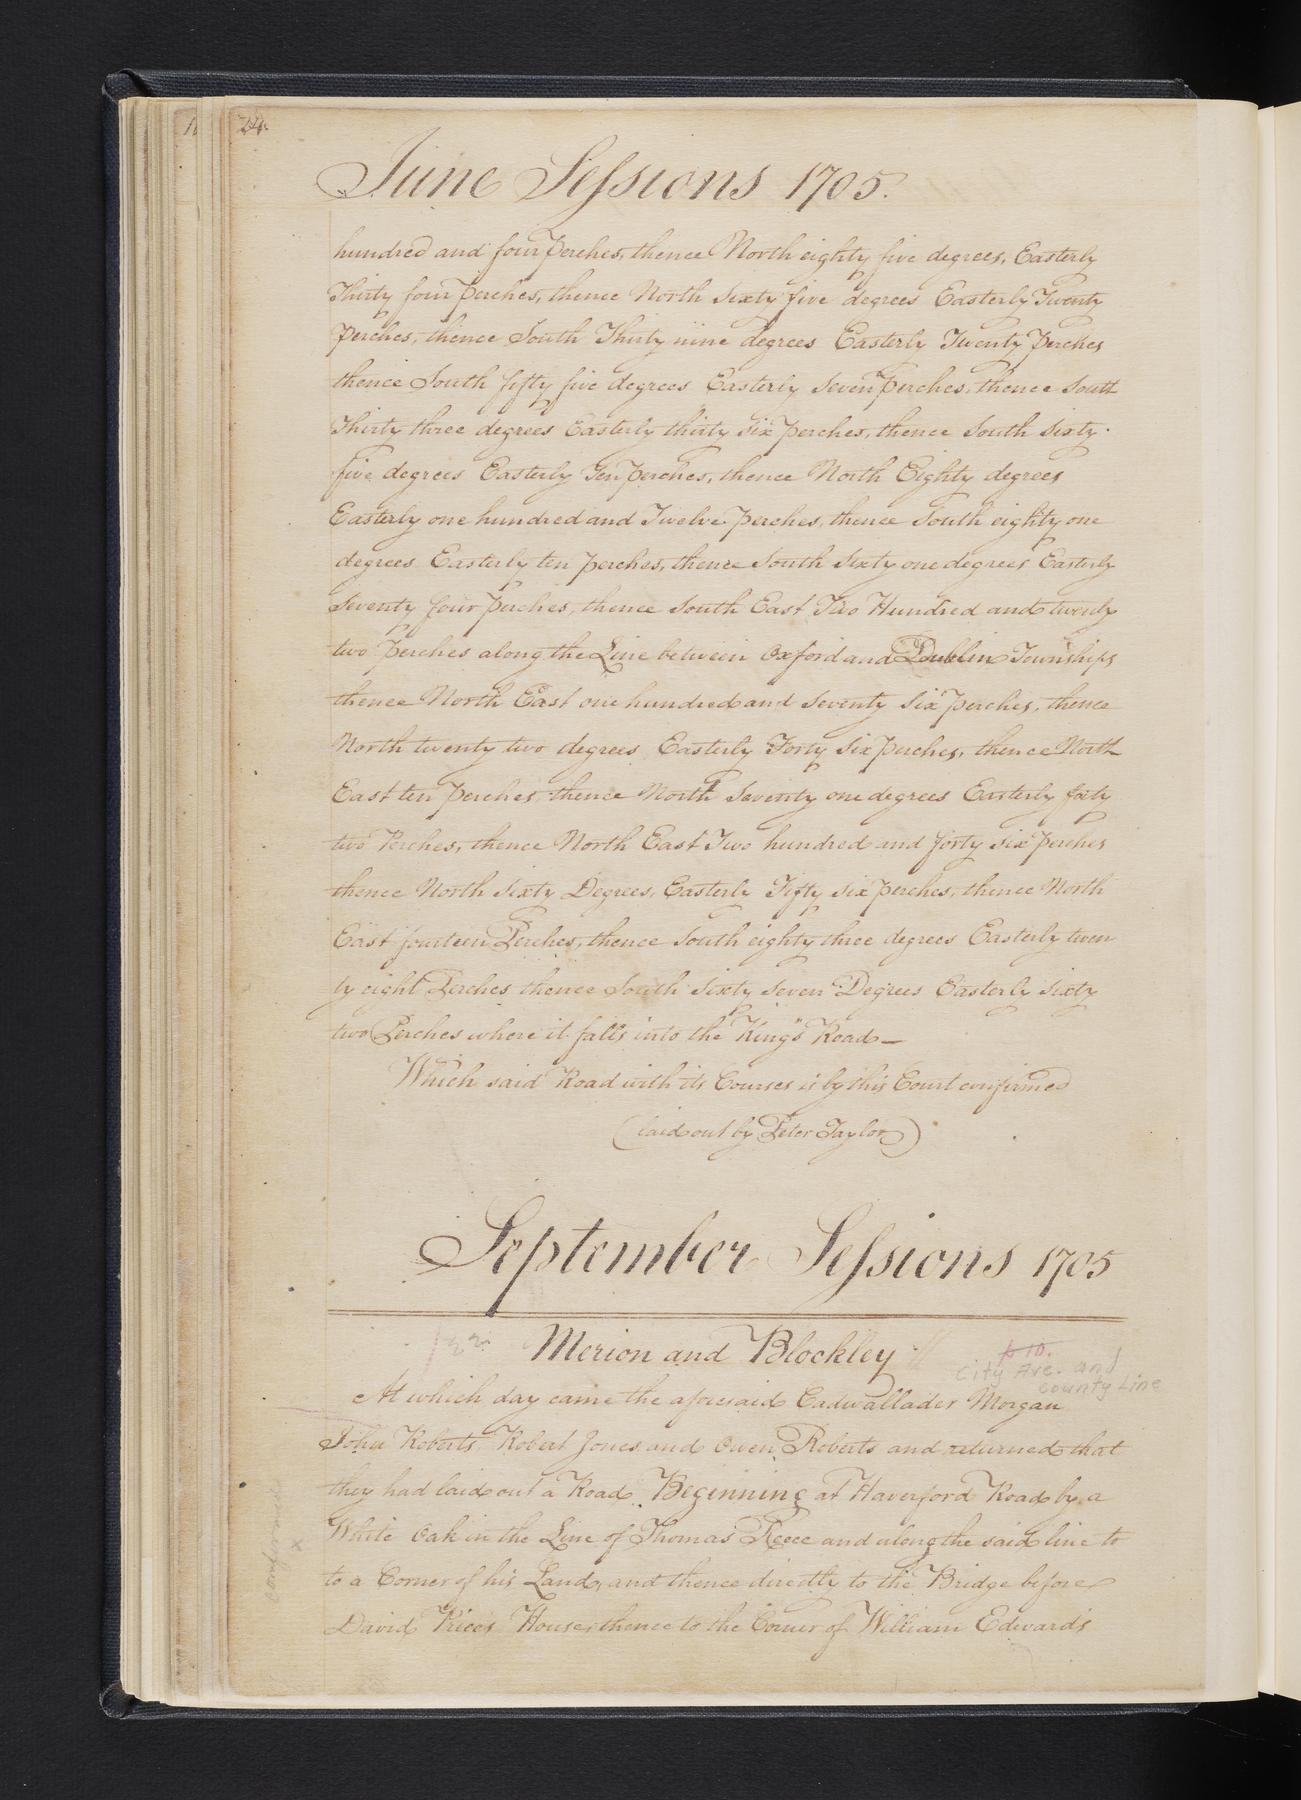 24.
June Sessions 1705.
hundred and four perches, thence North eighty five degrees, Easterly
Thirty four perches, thence North Sixty five degrees Easterly Twenty
Perches, thence South Thirty nine degrees Easterly Twenty Perches
thence South fifty five degrees Easterly Seven perches, thence South
Thirty three degrees Easterly thirty six perches, thence South Sixty
five degrees Easterly Ten perches, thence North Eighty degrees
Easterly one hundred and Twelve perches, thence South eighty one
degrees Easterly ten perches, thence South Sixty one degrees Easterly
Seventy four perches, thence South East Two Hundred and twenty
two perches along the Line between Oxford and Dublin Townships
thence North East one hundred and Seventy Six perches, thence
North twenty two degrees Easterly Forty Six perches, thence North
East ten perches thence North Seventy one degrees Easterly
two Perches, thence North East Two hundred and forty six perches
thence North Sixty Degrees, Easterly Fifty six perches, thence North
East fourteen Perches, thence South eighty three degrees Easterly twen
ty eight Perches thence South Sixty Seven Degrees Easterly Sixty
two Perches where it falls into the King's Road—
Which said Road with its Courses is by this Court confirmed
(laid out by Peter Taylor)
September Sessions 1705
Merion and Blockley
p 10.
City Ave. and
County Line
At which day came the aforesaid Cadwallader Morgan
John Roberts, Robert Jones and Owen Roberts and returned that
they had laid out a Road Beginning at Haverford Road by a
White Oak in the Line of Thomas Reece and along the said line to
to a Corner of his Land, and thence directly to the Bridge before
David Prices House, thence to the Corner of William Edwards
confirmed
x